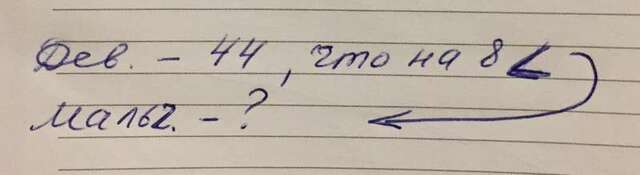 Дев. – 44, что на 8 <
Мальч. – ?